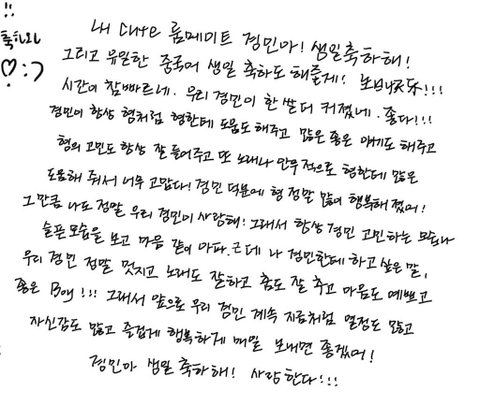 !!
축하해
♡:)
내 cute 룸메이트 경민아! 생일축하해!
그리고 유일한 중국어 생일 축하도 해줄게! 生日快乐!!!
시간이 참빠르네. 우리 경민이 한 살 더 커졌네. 좋다!!!
경민이 항상 형처럼 형한테 도움도 해주고 많은 좋은 얘기도 해주고
형의 고민도 항상 잘 들어주고 또 노래나 안무적으로 형한테 많은
도움해 줘서 너무 고맙다! 경민 덕분에 형 정말 많이 행복해졌어!
그만큼 나도 정말 우리 경민이 사랑해! 그래서 항상 경민 고민하는 모습나
슬픈모습을 보고 마음 같이 아파. 근데 나 경민한테 하고 싶은 말,
우리 경민 정말 멋지고 노래도 잘하고 춤도 잘 추고 마음도 예쁘고
좋은 Boy!!! 그래서 앞으로 우리 경민 계속 지금처럼 열정도 많고
자신감도 많고 즐겁게 행복하게 매일 보내면 좋겠어!
경민아 생일 축하해! 사랑한다!!!